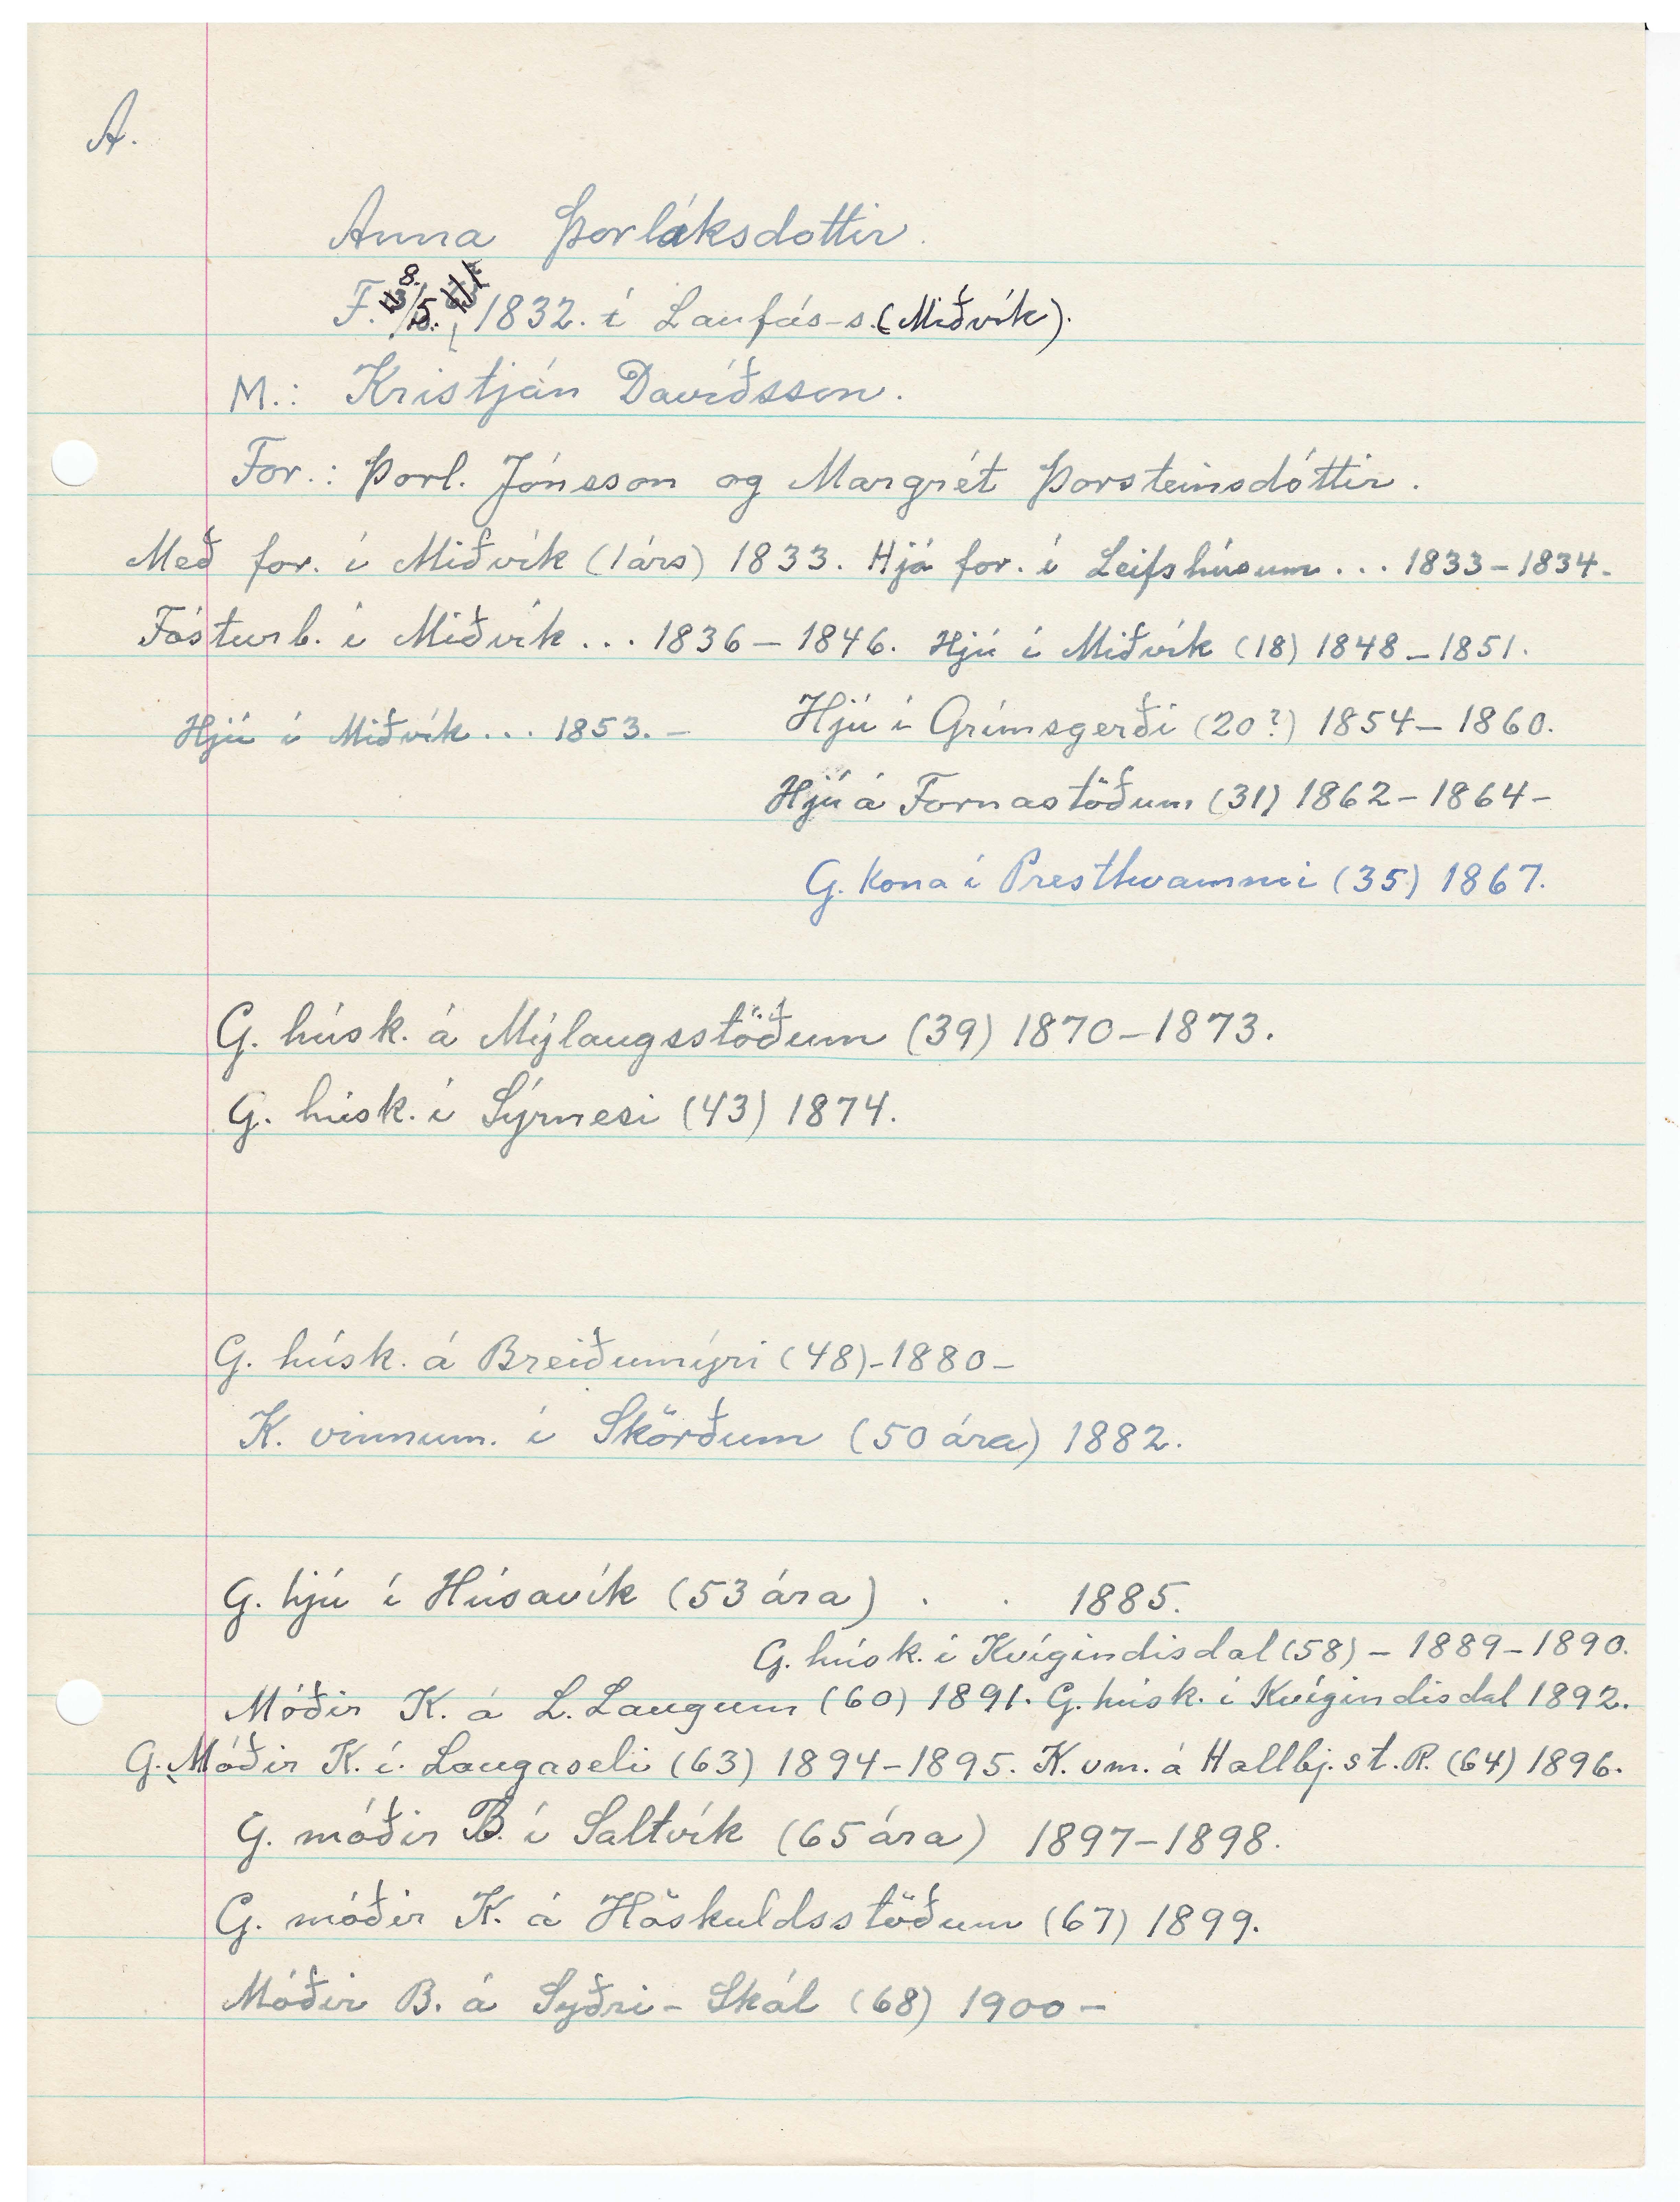 A.
Anna Þorláksdottir.
F. 8/5. 1832. í Laufás-s. (Miðvík).
M.: Kristján Davíðsson.
For.: Þorl. Jónsson og Margrét Þorsteinsdóttir.
Með for. í Miðvík (1árs) 1833. Hjá for. í Leifshúsum... 1833-1834.
Fósturb. í Miðvík... 1836-1846. Hjú í Miðvík (18) 1848-1851.
Hjú í Miðvík... 1853.- Hjú í Grímsgerði (20?) 1854-1860.
Hjú á Fornastöðum (31) 1862-1864-
G. kona í Presthvammi (35) 1867.
G. húsk. á Mýlaugsstöðum (39) 1870-1873.
G. húsk. í Sýrnesi (43) 1874.
G. húsk. á Breiðumýri (48)-1880-
K. vinnum. í Skörðum (50 ára) 1882.
G. hjú í Húsavík (53 ára) . . 1885.
G. húsk. í Kvígindisdal (58) - 1889-1890.
Móðir K. á L. Laugum (60) 1891. G. húsk. í Kvígindisdal 1892.
G. Móðir K. í. Laugaseli (63) 1894-1895. K. vm. á Hallbj.st. R. (64) 1896.
G. móðir B. í Saltvík (65 ára) 1897-1898.
G. móðir K. á Höskuldsstöðum (67) 1899.
Móðir B. á Syðri-Skál (68) 1900-